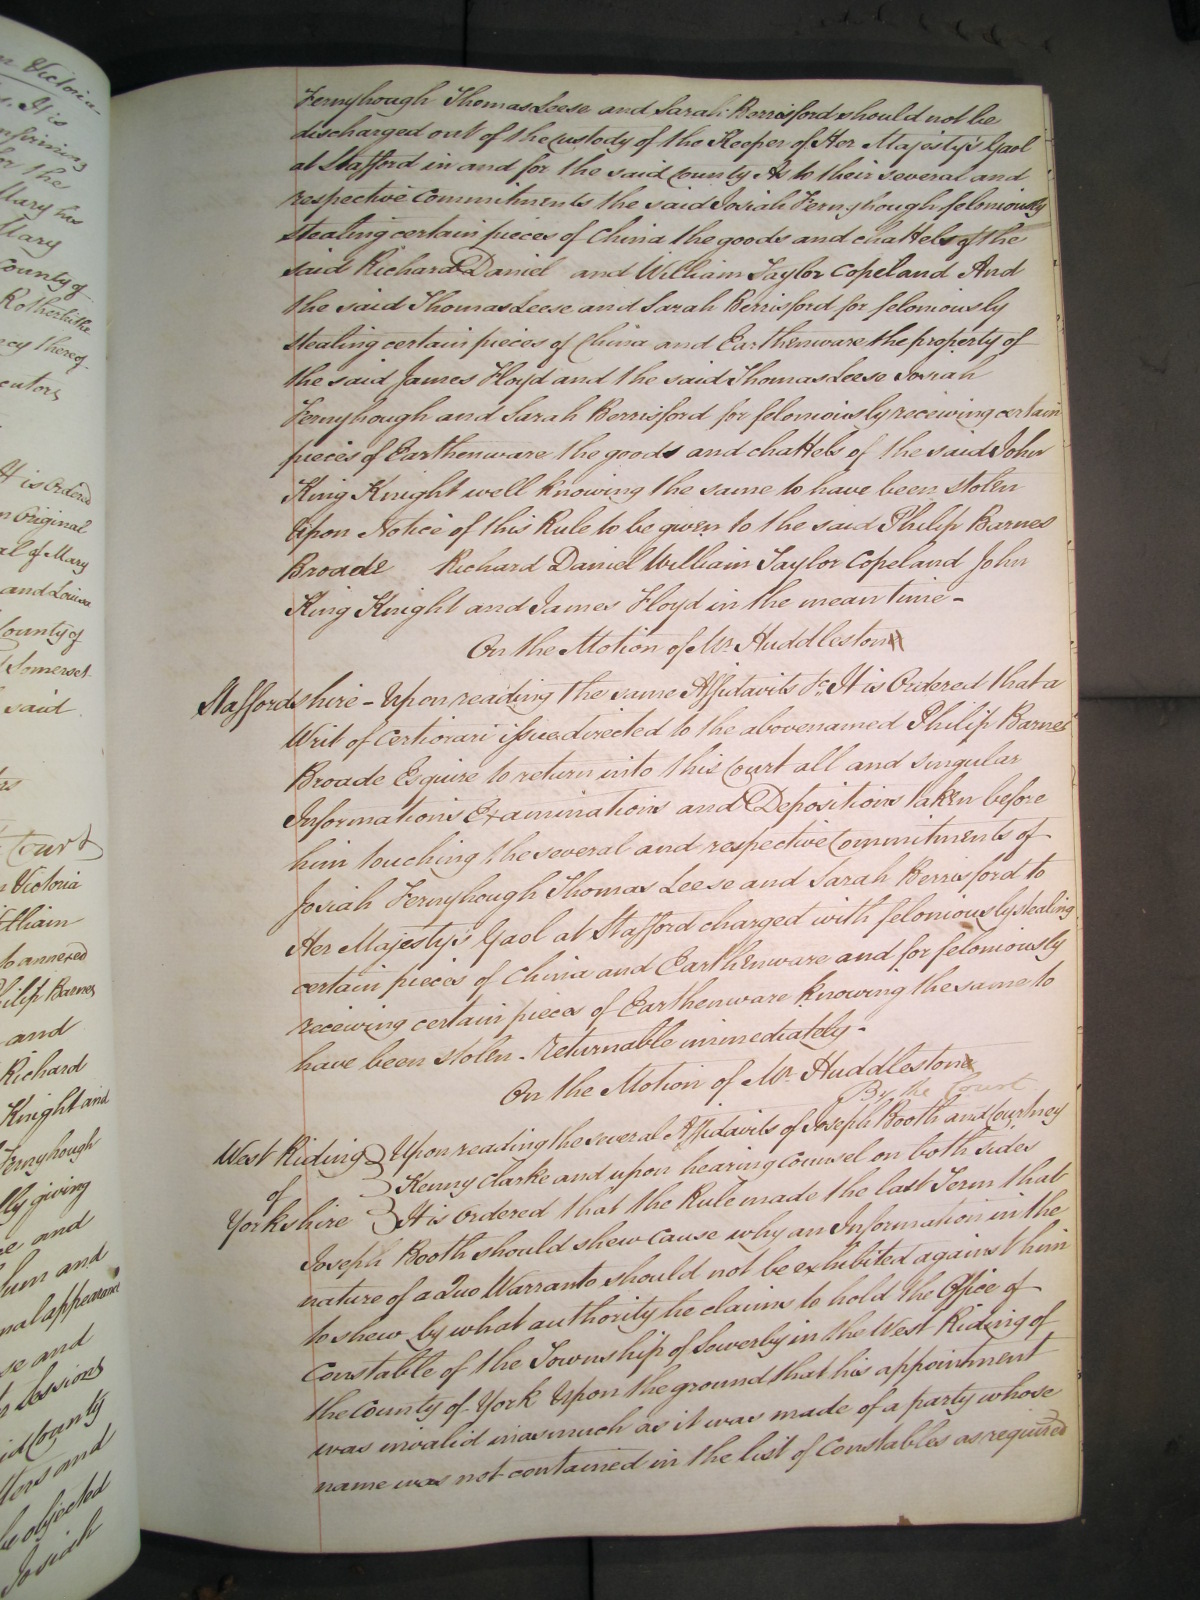 Victoria
s. It is
for the
Mary his
Mary
County of
Rotherhithe
cy thereof
ecutors
It is Ordered
n Original
al of Mary
and Louisa
County of
Somerset
said
Court
Victoria
to annexed
Philip Barnes
and
Richard
Knight and
Fernyhough
lly giving
se and
and
nal appearance
se and
Sessions
id County
tters and
be objected
Josiah
Fernyhough Thomas Leese and Sarah Berrisford should not be
discharged out of the custody of the Keeper of Her Majesty's Gaol
at Stafford in and for the said County As to their several and
respective Commitments the said Josiah Fernyhough feloniously
stealing certain pieces of China the goods and chattels of the
said Richard Daniel and William Taylor Copeland And
the said Thomas Leese and Sarah Berrisford for feloniously
stealing certain pieces of China and Earthenware the property of
the said James Floyd and the said Thomas Leese Josiah
Fernyhough and Sarah Berrisford for feloniously receiving certain
pieces of Earthenware the goods and chattels of the said John
King Knight well knowing the same to have been stolen
Upon Notice of this Rule to be given to the said Philip Barnes
Broade Richard Daniel William Taylor Copeland John
King Knight and James Floyd in the mean time -
On the Motion of Mr. Huddleston
Staffordshire - Upon reading the same Affidavits &c. It is Ordered that a
Writ of Certiorari issue directed to the abovenamed Philip Barnes
Broade Esquire to return into this Court all and singular
Informations Examinations and Depositions taken before
him touching the several and respective Commitments of
Josiah Fernyhough Thomas Leese and Sarah Berrisford to
Her Majesty's Gaol at Stafford charged with feloniously stealing
certain pieces of China and Earthenware and for feloniously
receiving certain pieces of Earthenware knowing the same to
have been stolen - returnable immediately -
On the Motion of Mr. Huddlestone
By the Court
West Riding } Upon reading the several Affidavits of Joseph Booth and Courtney
of } Kenny Clarke and upon hearing Counsel on both sides
Yorkshire } It is Ordered that the Rule made the last Term that
Joseph Booth should shew cause why an Information in the
nature of a Quo Warranto should not be exhibited against him
to shew by what authority he claims to hold the Office of
Constable of the Township of Sowerby in the West Riding of
the County of York Upon the ground that his appointment
was invalid inasmuch as it was made of a party whose
name was not contained in the list of Constables as required